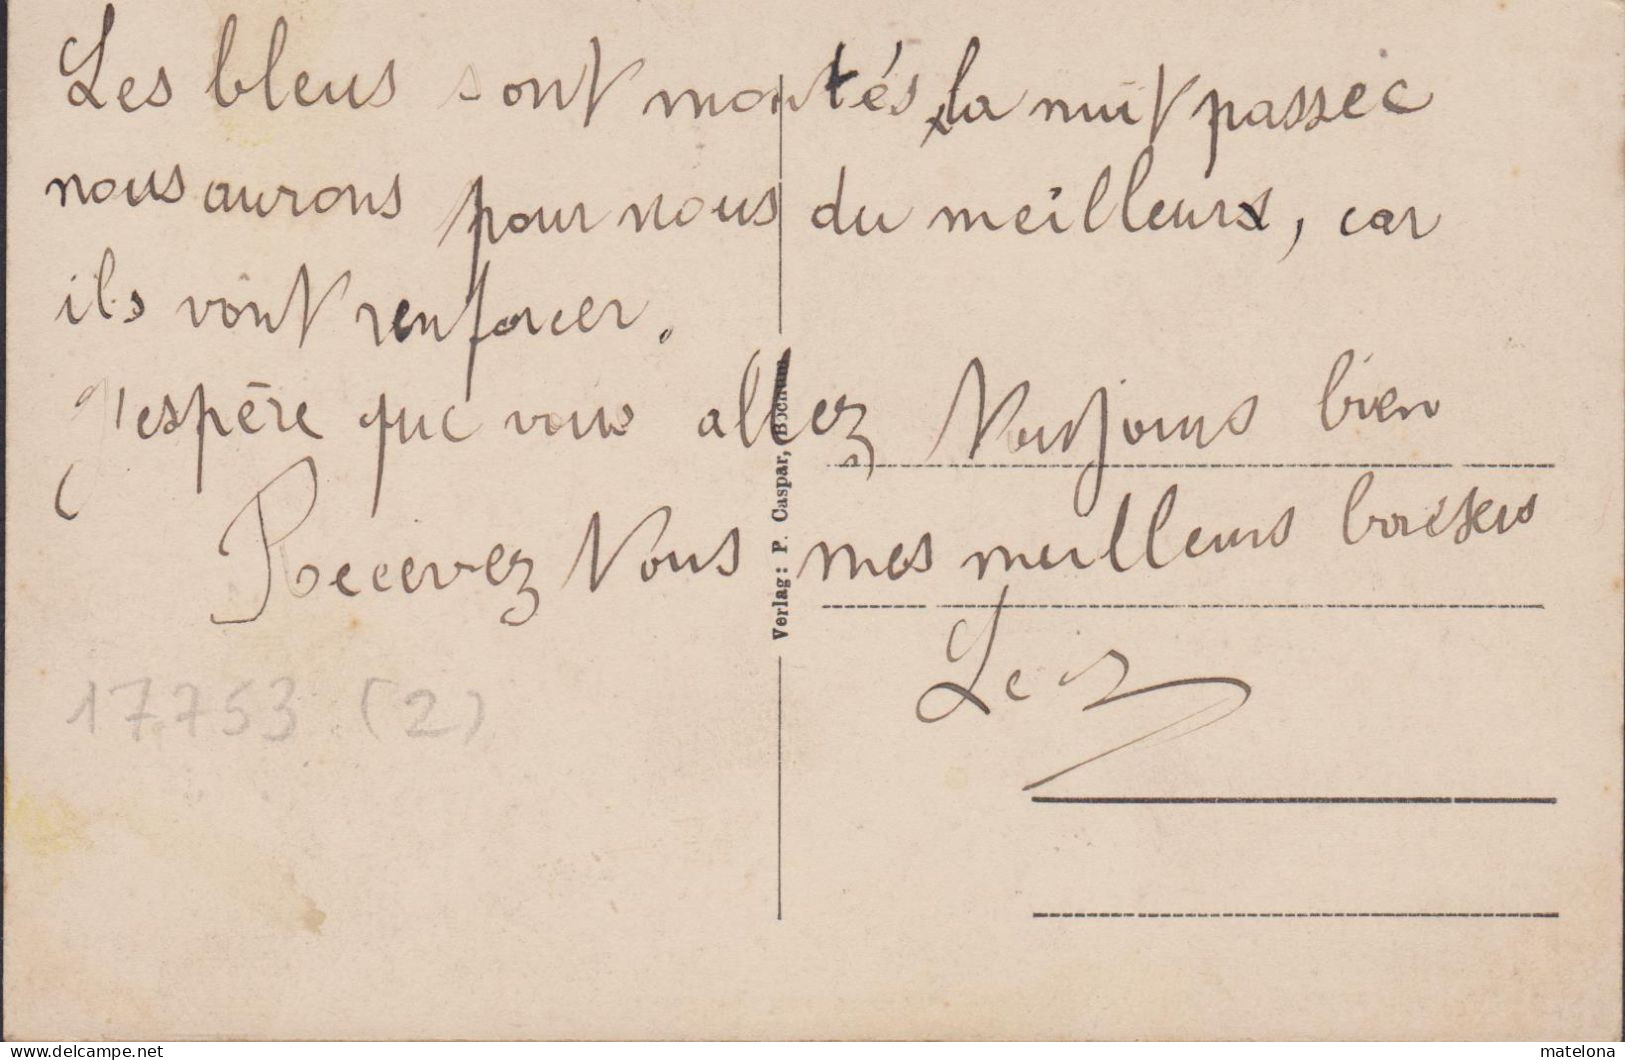 Les bleus sont montés la nuit passée
nous aurons pour nous du meilleurs, car
ils vont renforcer.
J'espère que vous allez Toujours bien
Recevez Vous mes meilleurs baisers
17.753 (2)
Verlag: P. Caspar, Bochum.
delcampe.net
matelona